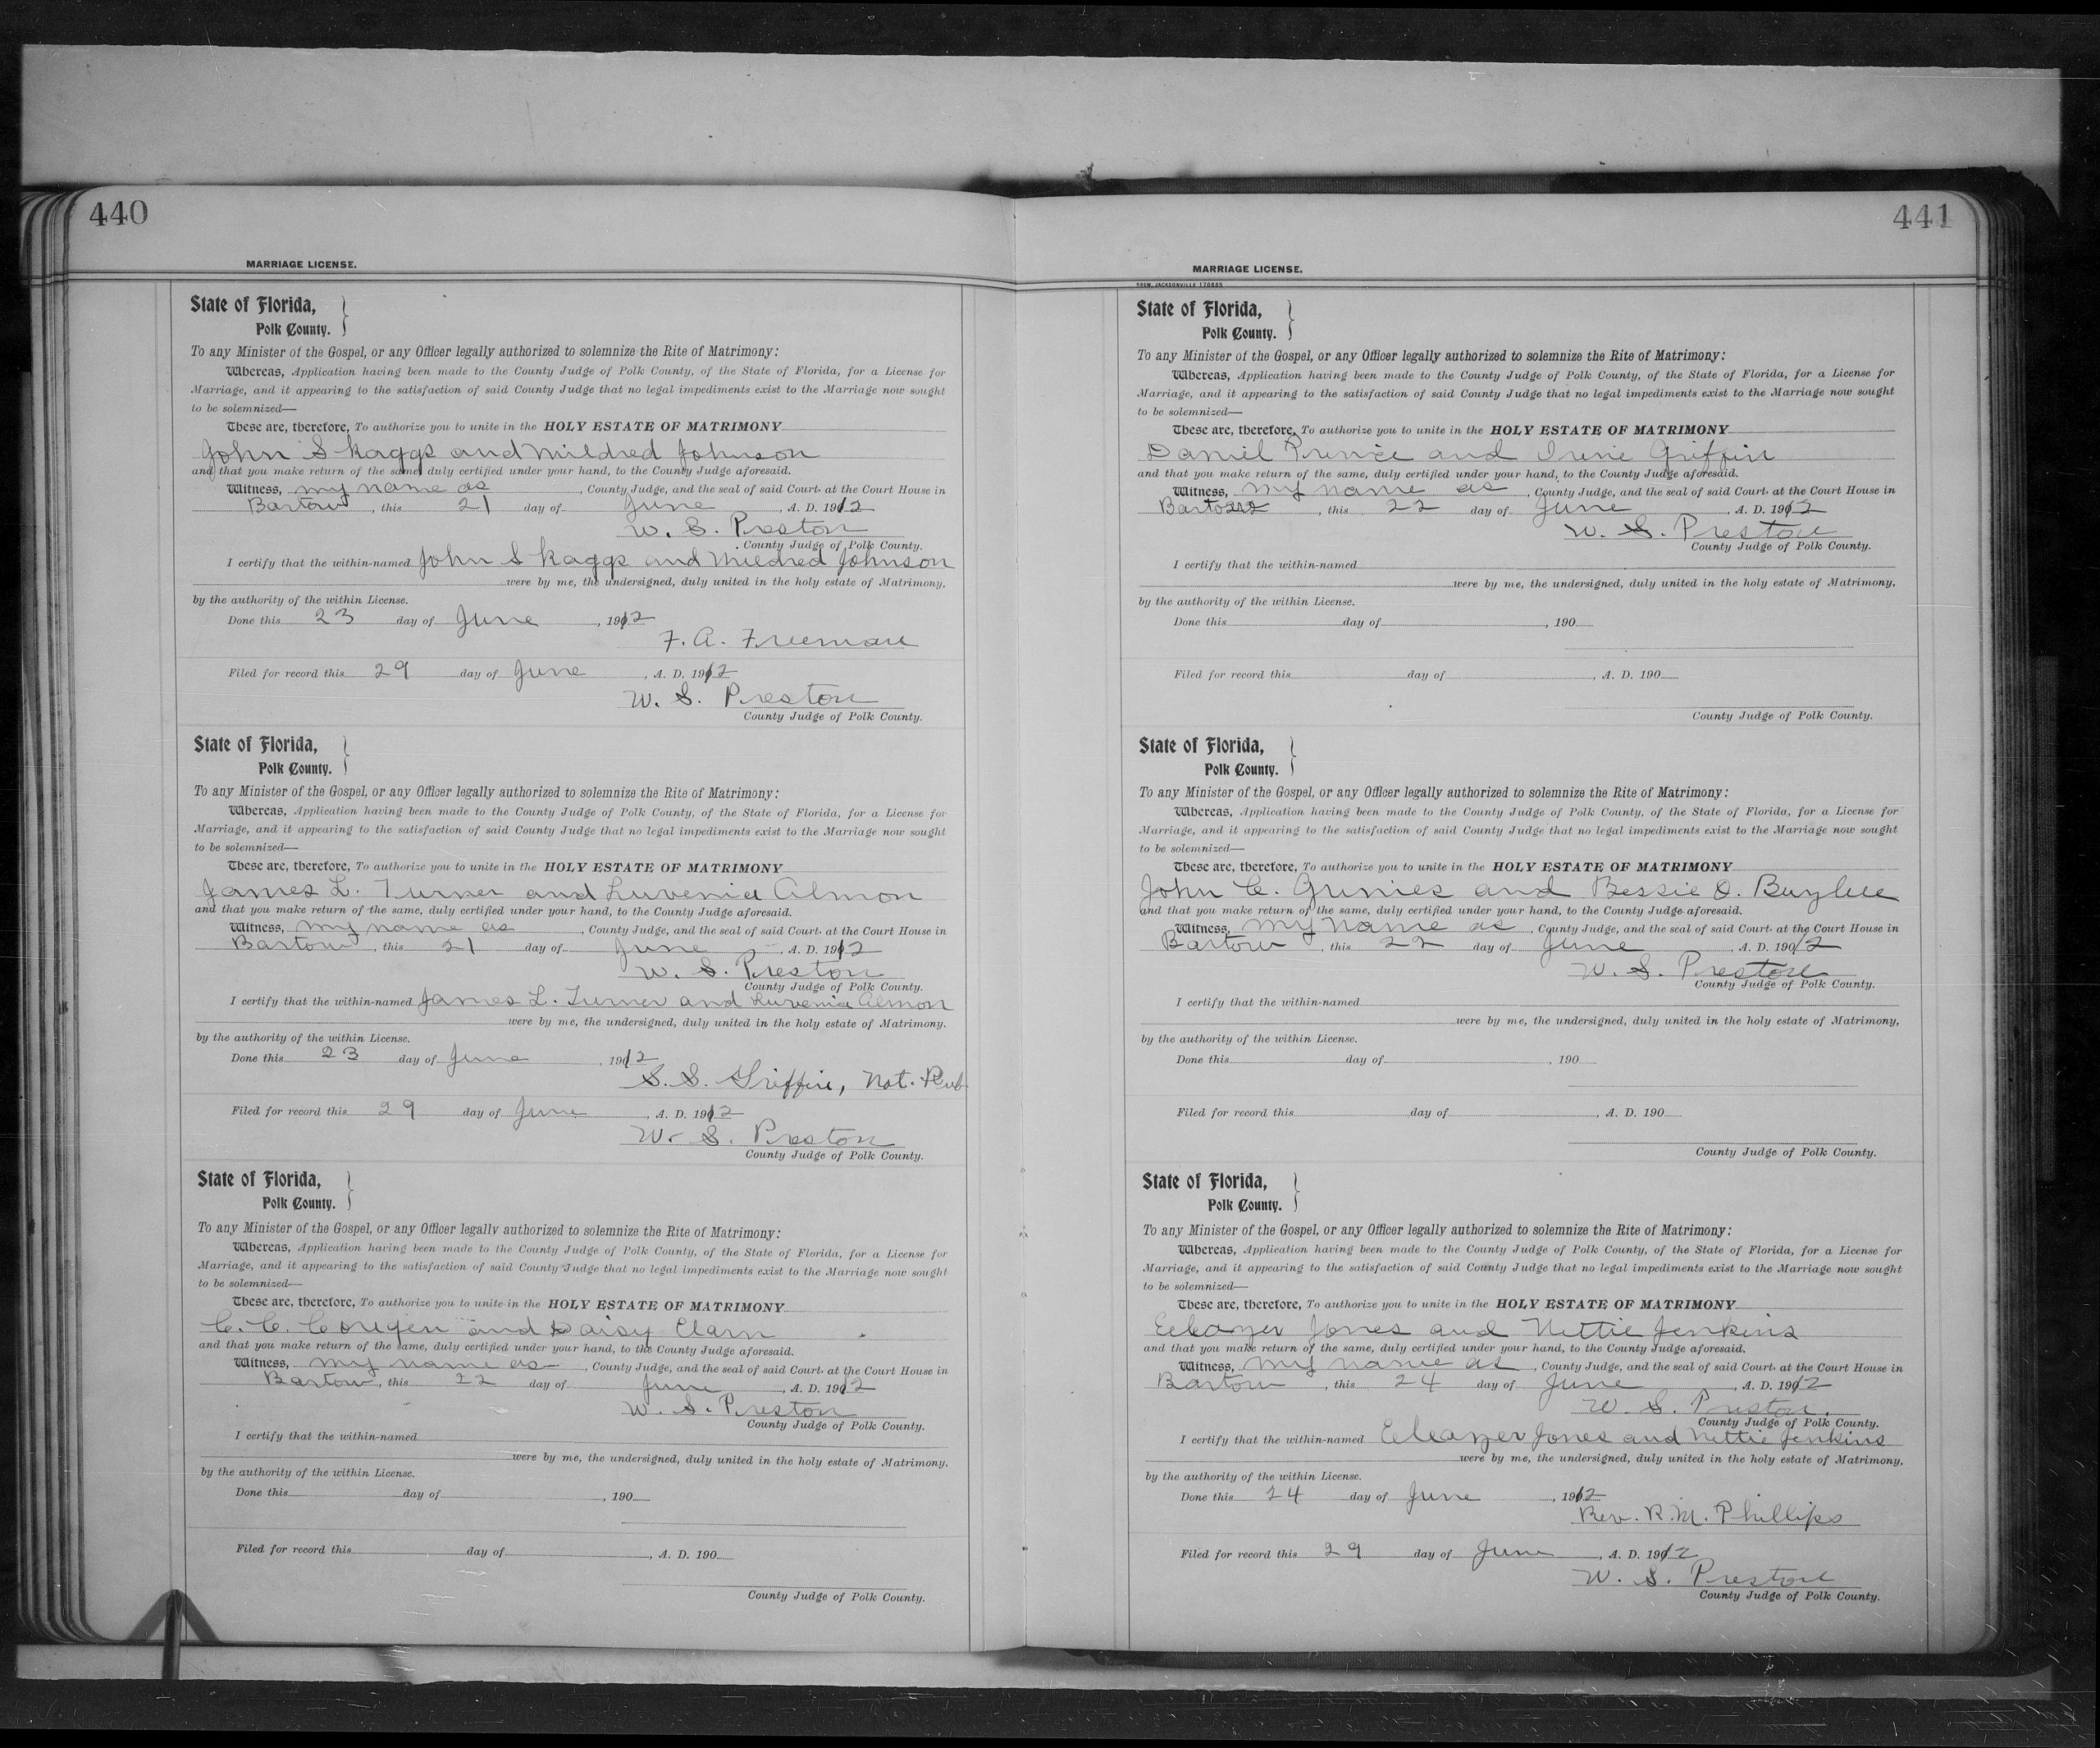 440
MARRIAGE LICENSE.
State of Florida,
Polk County.
To any Minister of the Gospel, or any Officer legally authorized to solemnize the Rite of Matrimony:
Whereas, Application having been made to the County Judge of Polk County, of the State of Florida, for a License for
Marriage, and it appearing to the satisfaction of said County Judge that no legal impediments exist to the Marriage now sought
to be solemnized—
These are, therefore, To authorize you to unite in the HOLY ESTATE OF MATRIMONY
John Skaggs and Mildred Johnson
and that you make return of the same, duly certified under your hand, to the County Judge aforesaid.
Witness, my name as, County Judge, and the seal of said Court, at the Court House in
Bartow, this 21 day of June, A. D. 1912
W. S. Preston
County Judge of Polk County.
I certify that the within-named John Skaggs and Mildred Johnson
were by me, the undersigned, duly united in the holy estate of Matrimony,
by the authority of the within License.
Done this 23 day of June, 1912
F. A. Freeman
Filed for record this 29 day of June, A. D. 1912
W. S. Preston
County Judge of Polk County.
State of Florida,
Polk County.
To any Minister of the Gospel, or any Officer legally authorized to solemnize the Rite of Matrimony:
Whereas, Application having been made to the County Judge of Polk County, of the State of Florida, for a License for
Marriage, and it appearing to the satisfaction of said County Judge that no legal impediments exist to the Marriage now sought
to be solemnized—
These are, therefore, To authorize you to unite in the HOLY ESTATE OF MATRIMONY
James L. Turner and Luvenia Almon
and that you make return of the same, duly certified under your hand, to the County Judge aforesaid.
Witness, my name as, County Judge, and the seal of said Court, at the Court House in
Bartow, this 21 day of June, A. D. 1912
W. S. Preston
County Judge of Polk County.
I certify that the within-named James L. Turner and Luvenia Almon
were by me, the undersigned, duly united in the holy estate of Matrimony.
by the authority of the within License.
Done this 23 day of June, 1912
S. S. Griffin, Not. Pub.
Filed for record this 29 day of June, A. D. 1912
W. S. Preston
County Judge of Polk County.
State of Florida,
Polk County.
To any Minister of the Gospel, or any Officer legally authorized to solemnize the Rite of Matrimony:
Whereas, Application having been made to the County Judge of Polk County, of the State of Florida, for a License for
Marriage, and it appearing to the satisfaction of said County Judge that no legal impediments exist to the Marriage now sought
to be solemnized—
These are, therefore, To authorize you to unite in the HOLY ESTATE OF MATRIMONY
C. C. and Daisy
and that you make return of the same, duly certified under your hand, to the County Judge aforesaid.
Witness, my name as, County Judge, and the seal of said Court, at the Court House in
Bartow, this 22 day of June, A. D. 1912
W. S. Preston
County Judge of Polk County.
I certify that the within-named
were by me, the undersigned, duly united in the holy estate of Matrimony,
by the authority of the within License.
Done this day of, 190
Filed for record this day of, A. D. 190
County Judge of Polk County.
441
MARRIAGE LICENSE.
DREW, JACKSONVILLE 170885
State of Florida,
Polk County.
To any Minister of the Gospel, or any Officer legally authorized to solemnize the Rite of Matrimony:
Whereas, Application having been made to the County Judge of Polk County, of the State of Florida, for a License for
Marriage, and it appearing to the satisfaction of said County Judge that no legal impediments exist to the Marriage now sought
to be solemnized—
These are, therefore, To authorize you to unite in the HOLY ESTATE OF MATRIMONY
Daniel Prince and Irine Griffin
and that you make return of the same, duly certified under your hand, to the County Judge aforesaid.
Witness, my name as, County Judge, and the seal of said Court, at the Court House in
Bartow, this 22 day of June, A. D. 1912
W. S. Preston
County Judge of Polk County.
I certify that the within-named
were by me, the undersigned, duly united in the holy estate of Matrimony,
by the authority of the within License.
Done this day of, 190
Filed for record this day of, A. D. 190
County Judge of Polk County.
State of Florida,
Polk County.
To any Minister of the Gospel, or any Officer legally authorized to solemnize the Rite of Matrimony:
Whereas, Application having been made to the County Judge of Polk County, of the State of Florida, for a License for
Marriage, and it appearing to the satisfaction of said County Judge that no legal impediments exist to the Marriage now sought
to be solemnized—
These are, therefore, To authorize you to unite in the HOLY ESTATE OF MATRIMONY
John C. and Bessie O.
and that you make return of the same, duly certified under your hand, to the County Judge aforesaid.
Witness, my name as, County Judge, and the seal of said Court, at the Court House in
Bartow, this 22 day of June, A. D. 1912
W. S. Preston
County Judge of Polk County.
I certify that the within-named
were by me, the undersigned, duly united in the holy estate of Matrimony,
by the authority of the within License.
Done this day of, 190
Filed for record this day of, A. D. 190
County Judge of Polk County.
State of Florida,
Polk County.
To any Minister of the Gospel, or any Officer legally authorized to solemnize the Rite of Matrimony:
Whereas, Application having been made to the County Judge of Polk County, of the State of Florida, for a License for
Marriage, and it appearing to the satisfaction of said County Judge that no legal impediments exist to the Marriage now sought
to be solemnized—
These are, therefore, To authorize you to unite in the HOLY ESTATE OF MATRIMONY
Eleazer Jones and Nettie Jenkins
and that you make return of the same, duly certified under your hand, to the County Judge aforesaid.
Witness, my name as, County Judge, and the seal of said Court, at the Court House in
Bartow, this 24 day of June, A. D. 1912
W. S. Preston.
County Judge of Polk County.
I certify that the within-named Eleazer Jones and Nettie Jenkins
were by me, the undersigned, duly united in the holy estate of Matrimony,
by the authority of the within License.
Done this 24 day of June, 1912
Rev. R. M. Phillips
Filed for record this 29 day of June, A. D. 1912
W. S. Preston
County Judge of Polk County.